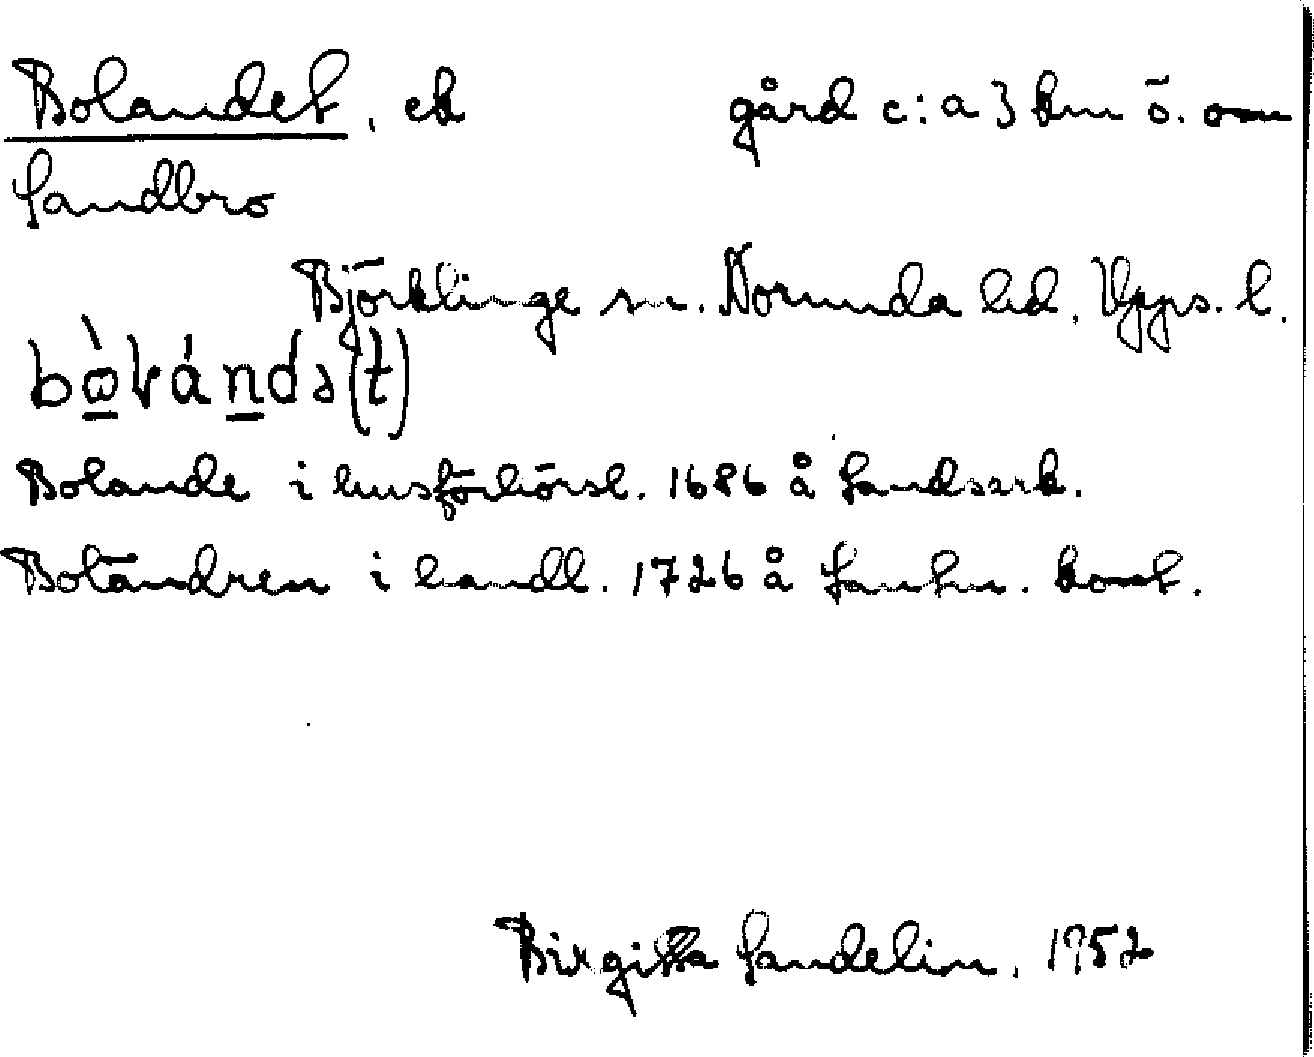 Bolandet, ek gård c:a 3 km ö. om
Sandbro
Björklinge sn. Norunda hd. Upps. l.
bὼɫándə(t)
Bolande i husförhörsl. 1686 å Landsark.
Boländren i handl. 1726 å Lantm. kont.
Birgitta Sandelin. 1952